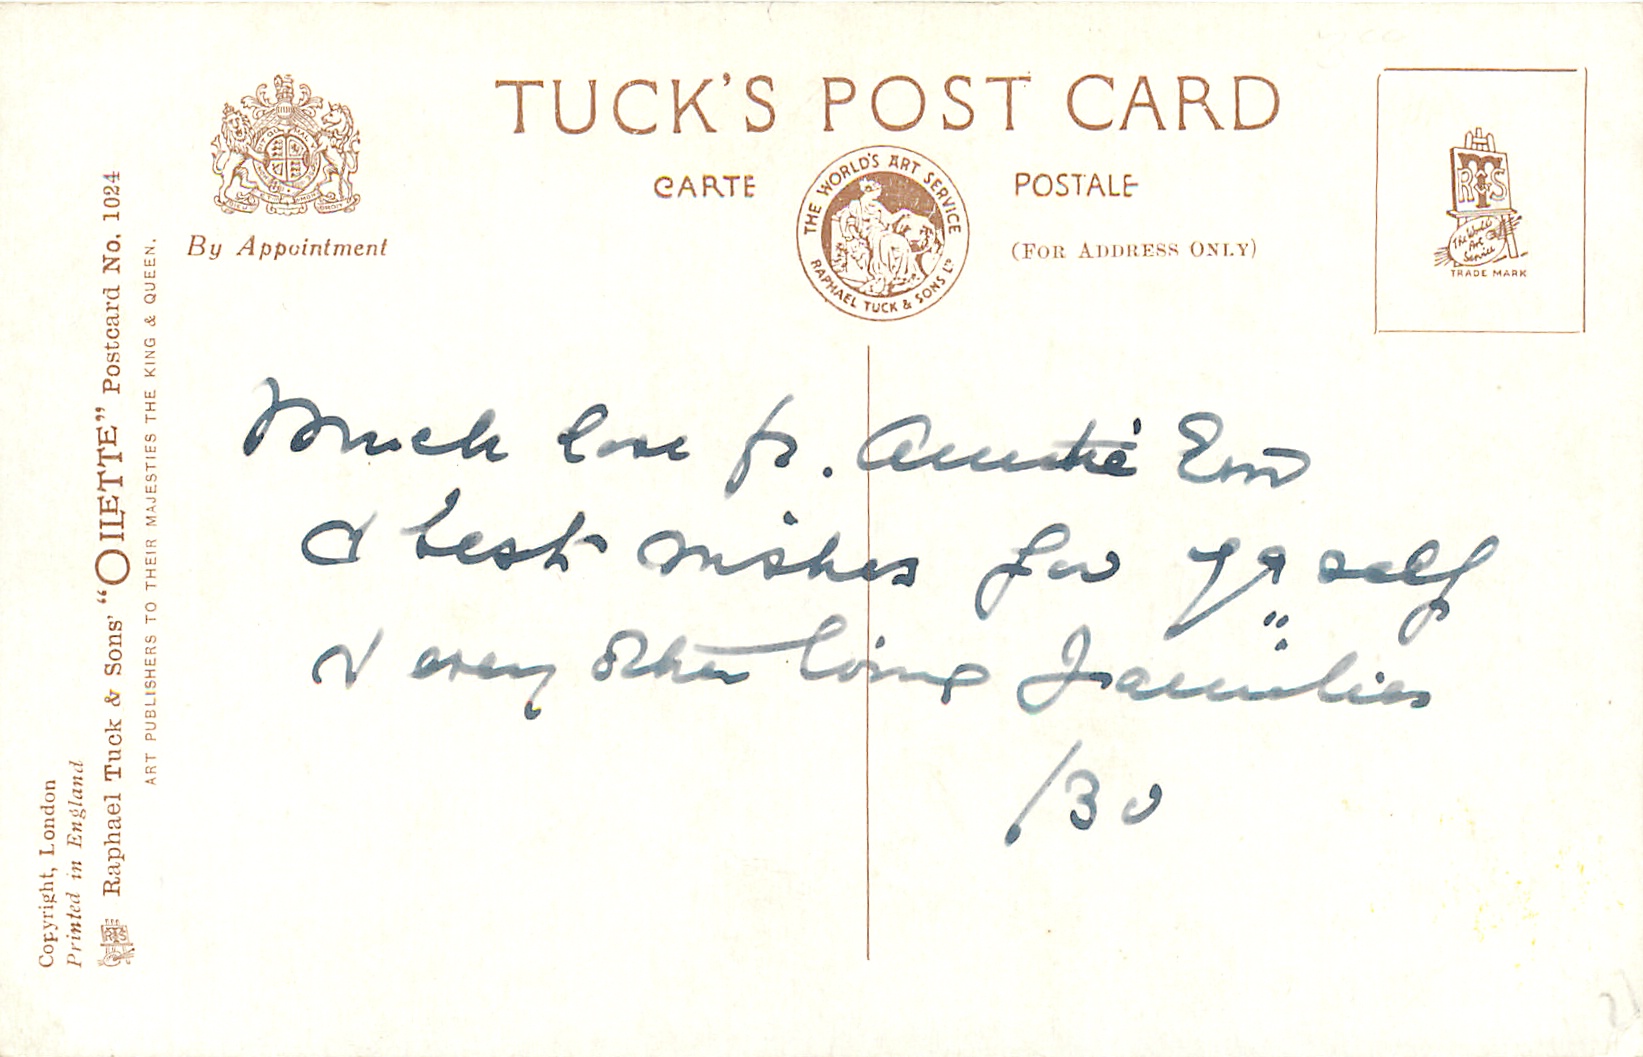 TUCK'S POST CARD
CARTE POSTALE
(FOR ADDRESS ONLY)
By Appointment
THE WORLD'S ART SERVICE
RAPHAEL TUCK & SONS LTD
RTS
The World's Art Service
TRADE MARK
Much love fr. Auntie Em
& best wishes for yr self
& every other loving Families
/30
Copyright, London
Printed in England
Raphael Tuck & Sons' "OILETTE" Postcard No. 1024
ART PUBLISHERS TO THEIR MAJESTIES THE KING & QUEEN.